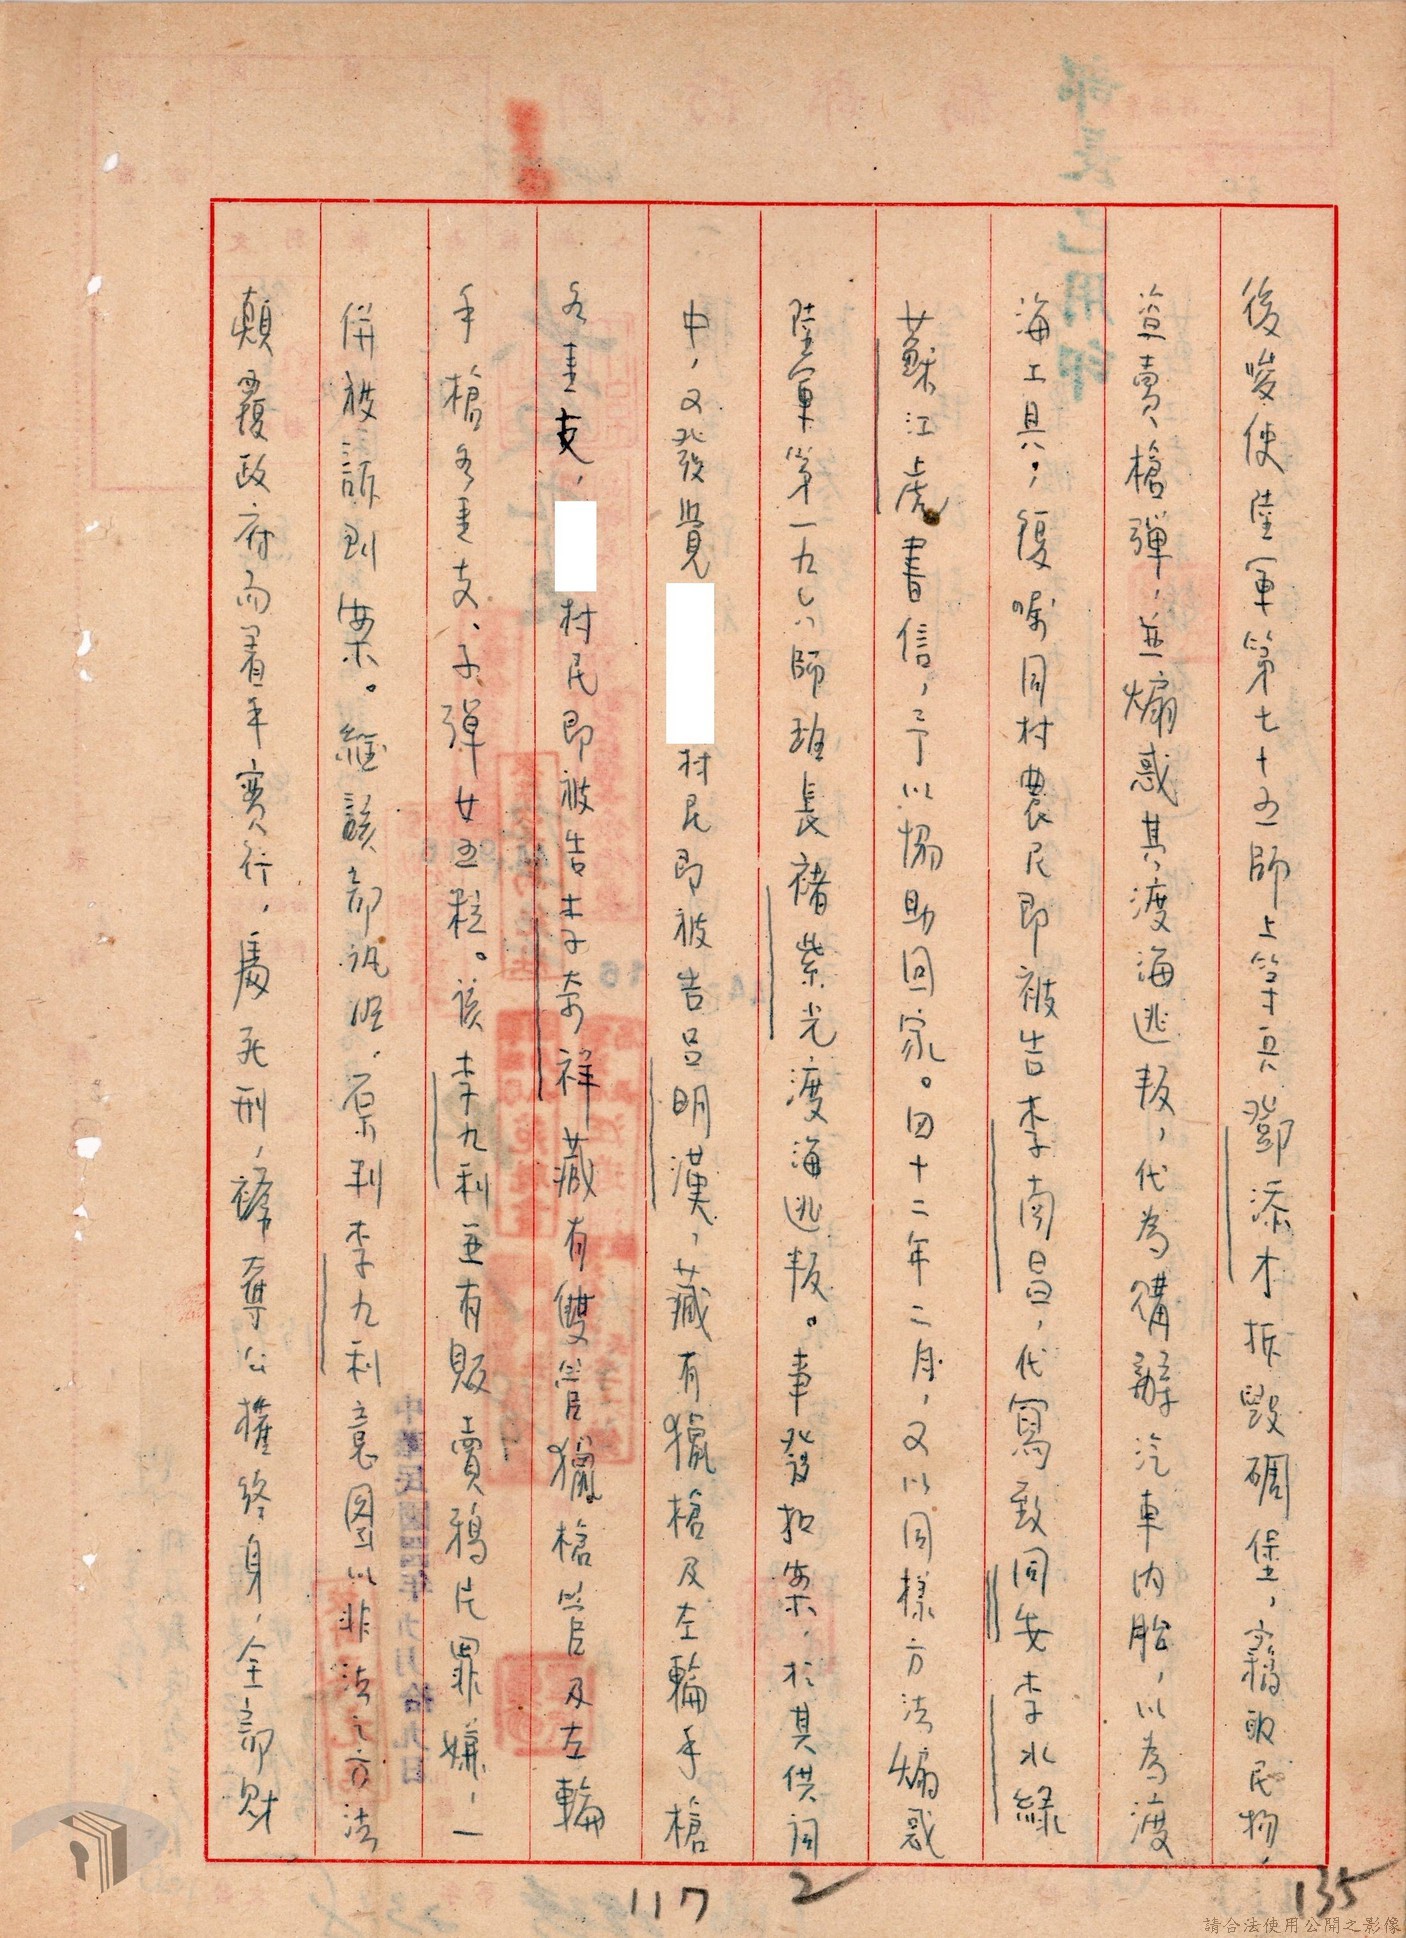 後唆使陸軍第七十五師上等兵鄧添才拆毀碉堡，竊取民物，
盜賣槍彈，並煽惑其渡海逃叛，代為購辦汽車內胎，以為渡
海工具，復囑同村農民即被告李南昌，代寫致同安李水綠
蘇江虎書信，予以協助回家。四十二年二月，又以同樣方法煽惑
陸軍第一九六師班長褚紫光渡海逃叛。事發扣案，於其供詞
中，又發覺村民即被告呂明漢，藏有獵槍及左輪手槍
各壹支，村民即被告李奇祥藏有雙管獵槍管及左輪
手槍各壹支、子彈廿五粒。該李九利並有販賣鴉片罪嫌，一
併被訴到案。經該部訊明，原判李九利意圖以非法之方法
顛覆政府而著手實行，處死刑，褫奪公權終身，全部財
117
2
135
中華民國四四年九月拾九日
請合法使用公開之影像